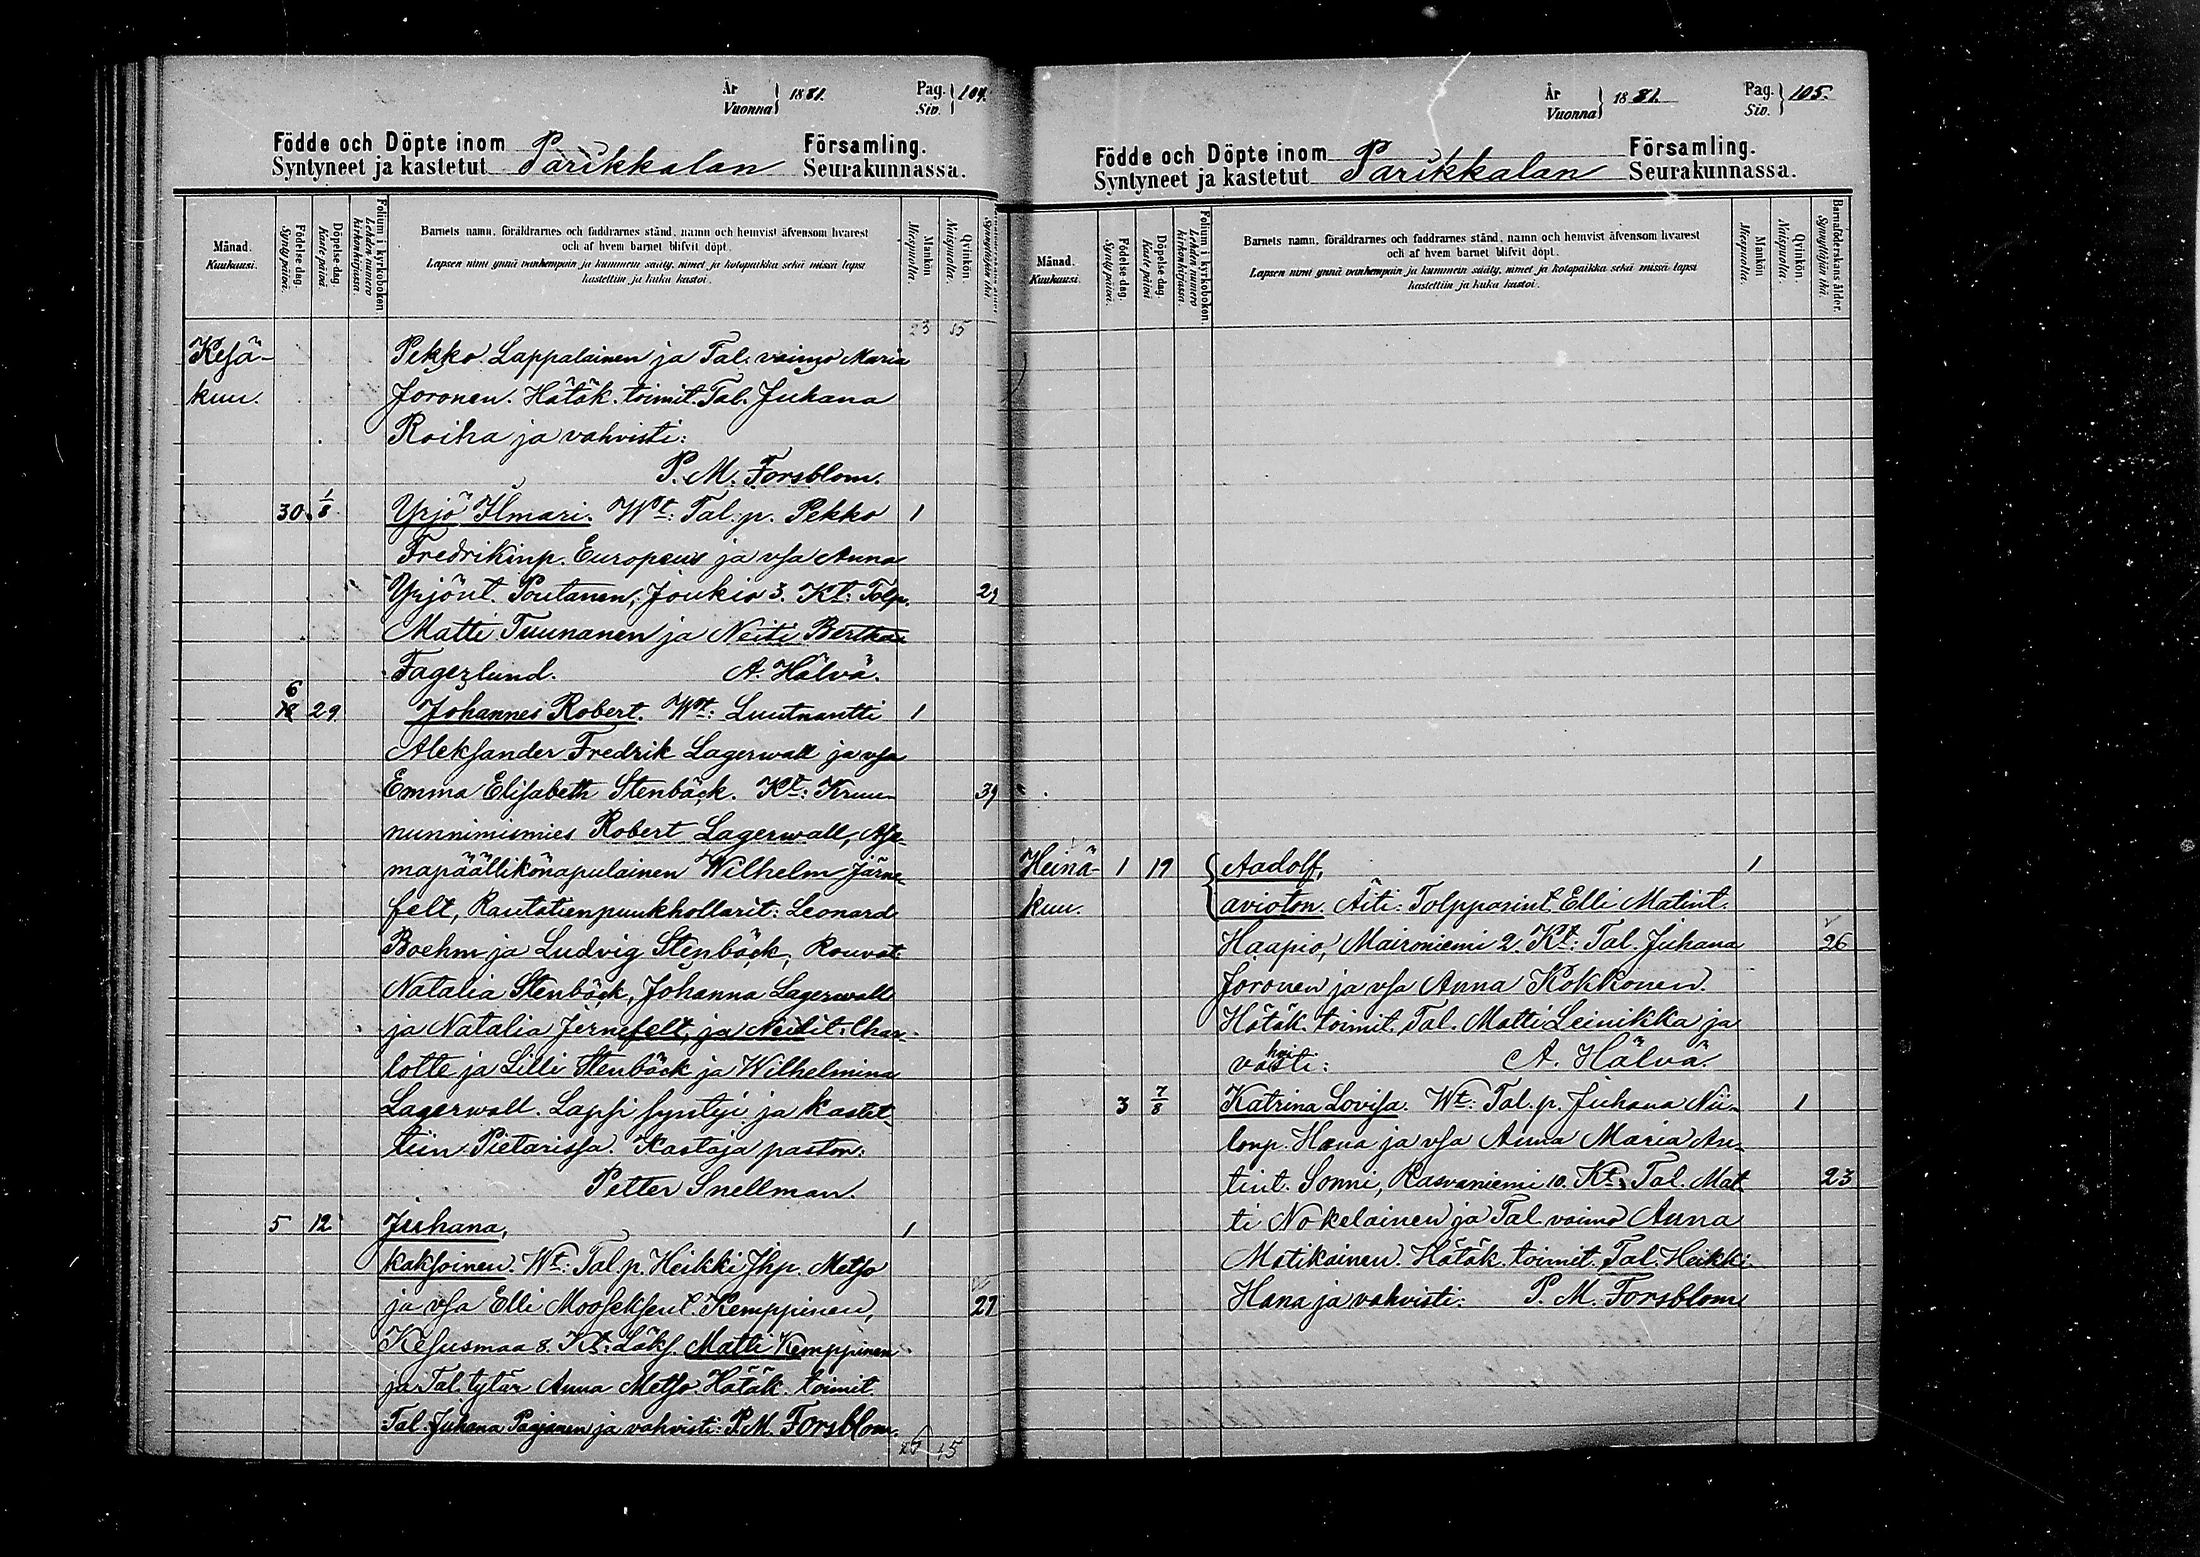 År
Vuonna
1881.
Pag.
Siv.
104.
Födde och Döpte inom
Syntyneet ja kastetut
Parikkalan
Församling.
Seurakunnassa.
Månad.
Kuukausi.
Födelse dag.
Synty päivä.
Döpelse dag.
Kaste päivä.
Folium i kyrkoboken.
Lehden numero
kirkonkirjassa.
Barnets namn, föräldrarnes och faddrarnes stånd, namn och hemvist äfvensom hvarest
och af hvem barnet blifvit döpt.
Lapsen nimi ynnä vanhempain ja kummein sääty, nimet ja kotopaikka sekä missä lapsi
kastettiin ja kuka kastoi.
Mankön
Miespuolia.
Qvinkön.
Naispuolia.
23 15
Kesä-
kuu.
Pekko Lappalainen ja Tal. vaimo Maria
Joronen. Hätäk. toimit. Tal. Juhana
Roiha ja vahvisti:
P. M. Forsblom.
30. 1/8 Yrjö Ilmari. Wt: Tal. p. Pekko 1
Fredrikinp. Europeus ja vsa Anna
Yrjönt. Poutanen, Joukio 3. Kt: Tolp. 29
Matti Tuunanen ja Neiti Bertha
Fagerlund. A. Hälvä.
6
18 29 Johannes Robert. Wt: Luutnantti 1
Aleksander Fredrik Lagerwall ja vsa
Emma Elisabeth Stenbäck. Kt: Kruu- 39
nunnimismies Robert Lagerwall, Ase-
mapäällikönapulainen Wilhelm Järne-
felt, Rautatienpuukhollarit: Leonard
Boehm ja Ludvig Stenbäck, Rouvat:
Natalia Stenbäck, Johanna Lagerwall
ja Natalia Jernefelt, ja Neitit: Char-
lotte ja Lilli Stenbäck ja Wilhelmina
Lagerwall. Lapsi syntyi ja kastet-
tiin Pietarissa. Kastaja pastori:
Petter Snellman.
5 12 Juhana, 1
kaksoinen. Wt: Tal. p. Heikki Jhp. Metso
ja vsa Elli Mooseksent. Kemppinen, 27
Kesusmaa 8. Kt: Läks. Matti Kemppinen
ja Tal. tytär Anna Metso. Hätäk. toimit.
Tal. Juhana Paajanen ja vahvisti: P. M. Forsblom.
26 15
År
Vuonna
1881.
Pag.
Siv.
105.
Födde och Döpte inom
Syntyneet ja kastetut
Parikkalan
Församling.
Seurakunnassa.
Månad.
Kuukausi.
Födelse dag.
Synty päivä.
Döpelse dag.
Kaste päivä.
Folium i kyrkoboken.
Lehden numero
kirkonkirjassa.
Barnets namn, föräldrarnes och faddrarnes stånd, namn och hemvist äfvensom hvarest
och af hvem barnet blifvit döpt.
Lapsen nimi ynnä vanhempain ja kummein sääty, nimet ja kotopaikka sekä missä lapsi
kastettiin ja kuka kastoi.
Mankön
Miespuolia.
Qvinkön.
Naispuolia.
Barnaföderskans ålder.
Synnyttäjän ikä.
Heinä- 1 19 Aadolf, 1
kuu. avioton. Äiti: Tolpparint. Elli Matint.
Haapio, Maironiemi 2. Kt: Tal. Juhana 26
Joronen ja vsa Anna Kokkonen.
Hätäk. toimit. Tal. Matti Leinikka ja
hvi
vasti: A. Hälvä.
3 7/8 Katrina Lovisa. Wt: Tal. p. Juhana Nii- 1
lonp. Hana ja vsa Anna Maria An-
tint. Sonni, Rasvaniemi 10. Kt: Tal. Mat- 23
ti Nokelainen ja Tal. vaimo Anna
Matikainen. Hätäk. toimit. Tal. Heikki
Hana ja vahvisti: P. M. Forsblom